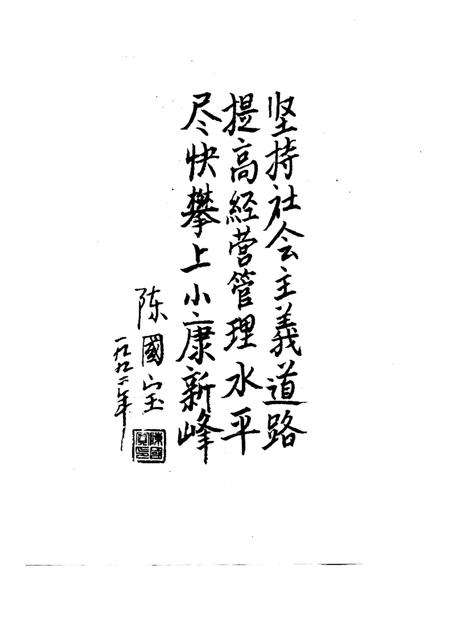 坚持社会主義道路
提高経营管理水平
尽快攀上小康新峰
陈國宝
一九九二年